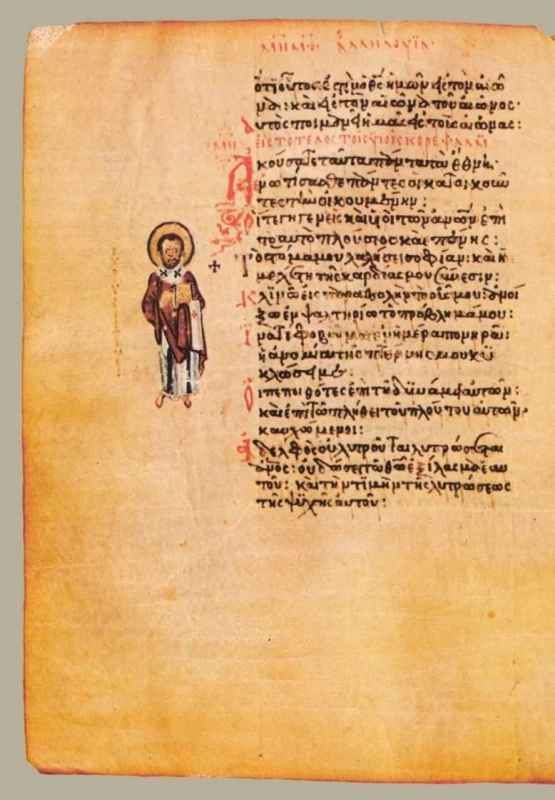 ἀλληλούϊα·
ὅτι οὗτός ἐστιν ὁ θς ἡμῶν εἰς τὸν αἰῶ
να: καὶ εἰς τὸν αἰῶνα τοῦ αἰῶνος·
αὐτὸς ποιμανεῖ ἡμᾶς εἰς τοὺς αἰῶνας:
εἰς τὸ τέλος τοῖς υἱοῖς κορὲ ψαλμ
Ἀκούσατε ταῦτα πάντα τὰ ἔθνη·
ἐνωτίσασθε πάντες οἱ κατοικοῦν
τες τὴν οἰκουμένην:
Οἵ τε γηγενεῖς καὶ υἱοὶ τῶν ἀνῶν ἐπι
τὸ αὐτὸ πλούσιος καὶ πένης:
Τὸ στόμα μου λαλήσει σοφίαν: καὶ ἡ
μελέτη τῆς καρδίας μου σύνεσιν:
Κλινῶ εἰς παραβολὴν τὸ οὖς μου: ἀνοί
ξω ἐν ψαλτηρίω τὸ πρόβλημά μου:
Ἵνα τί φοβοῦμαι ἐν ἡμέρα πονηρᾶ:
ἡ ἀνομία τῆς πτέρνης μου κυ
κλώσει με:
Οἱ πεποιθότες ἐπὶ τῆ δυνάμει αὐτῶν:
καὶ ἐπὶ τῶ πλήθει τοῦ πλούτου αὐτῶν·
καυχώμενοι:
Ἀδελφὸς οὐ λυτροῦται λυτρώσεται
ἄνος: οὐ δώσει τῶ θῶ ἐξίλασμα ἑαυ
τοῦ: καὶ τὴν τιμὴν τῆς λυτρώσεως
τῆς ψυχῆς αὐτοῦ: